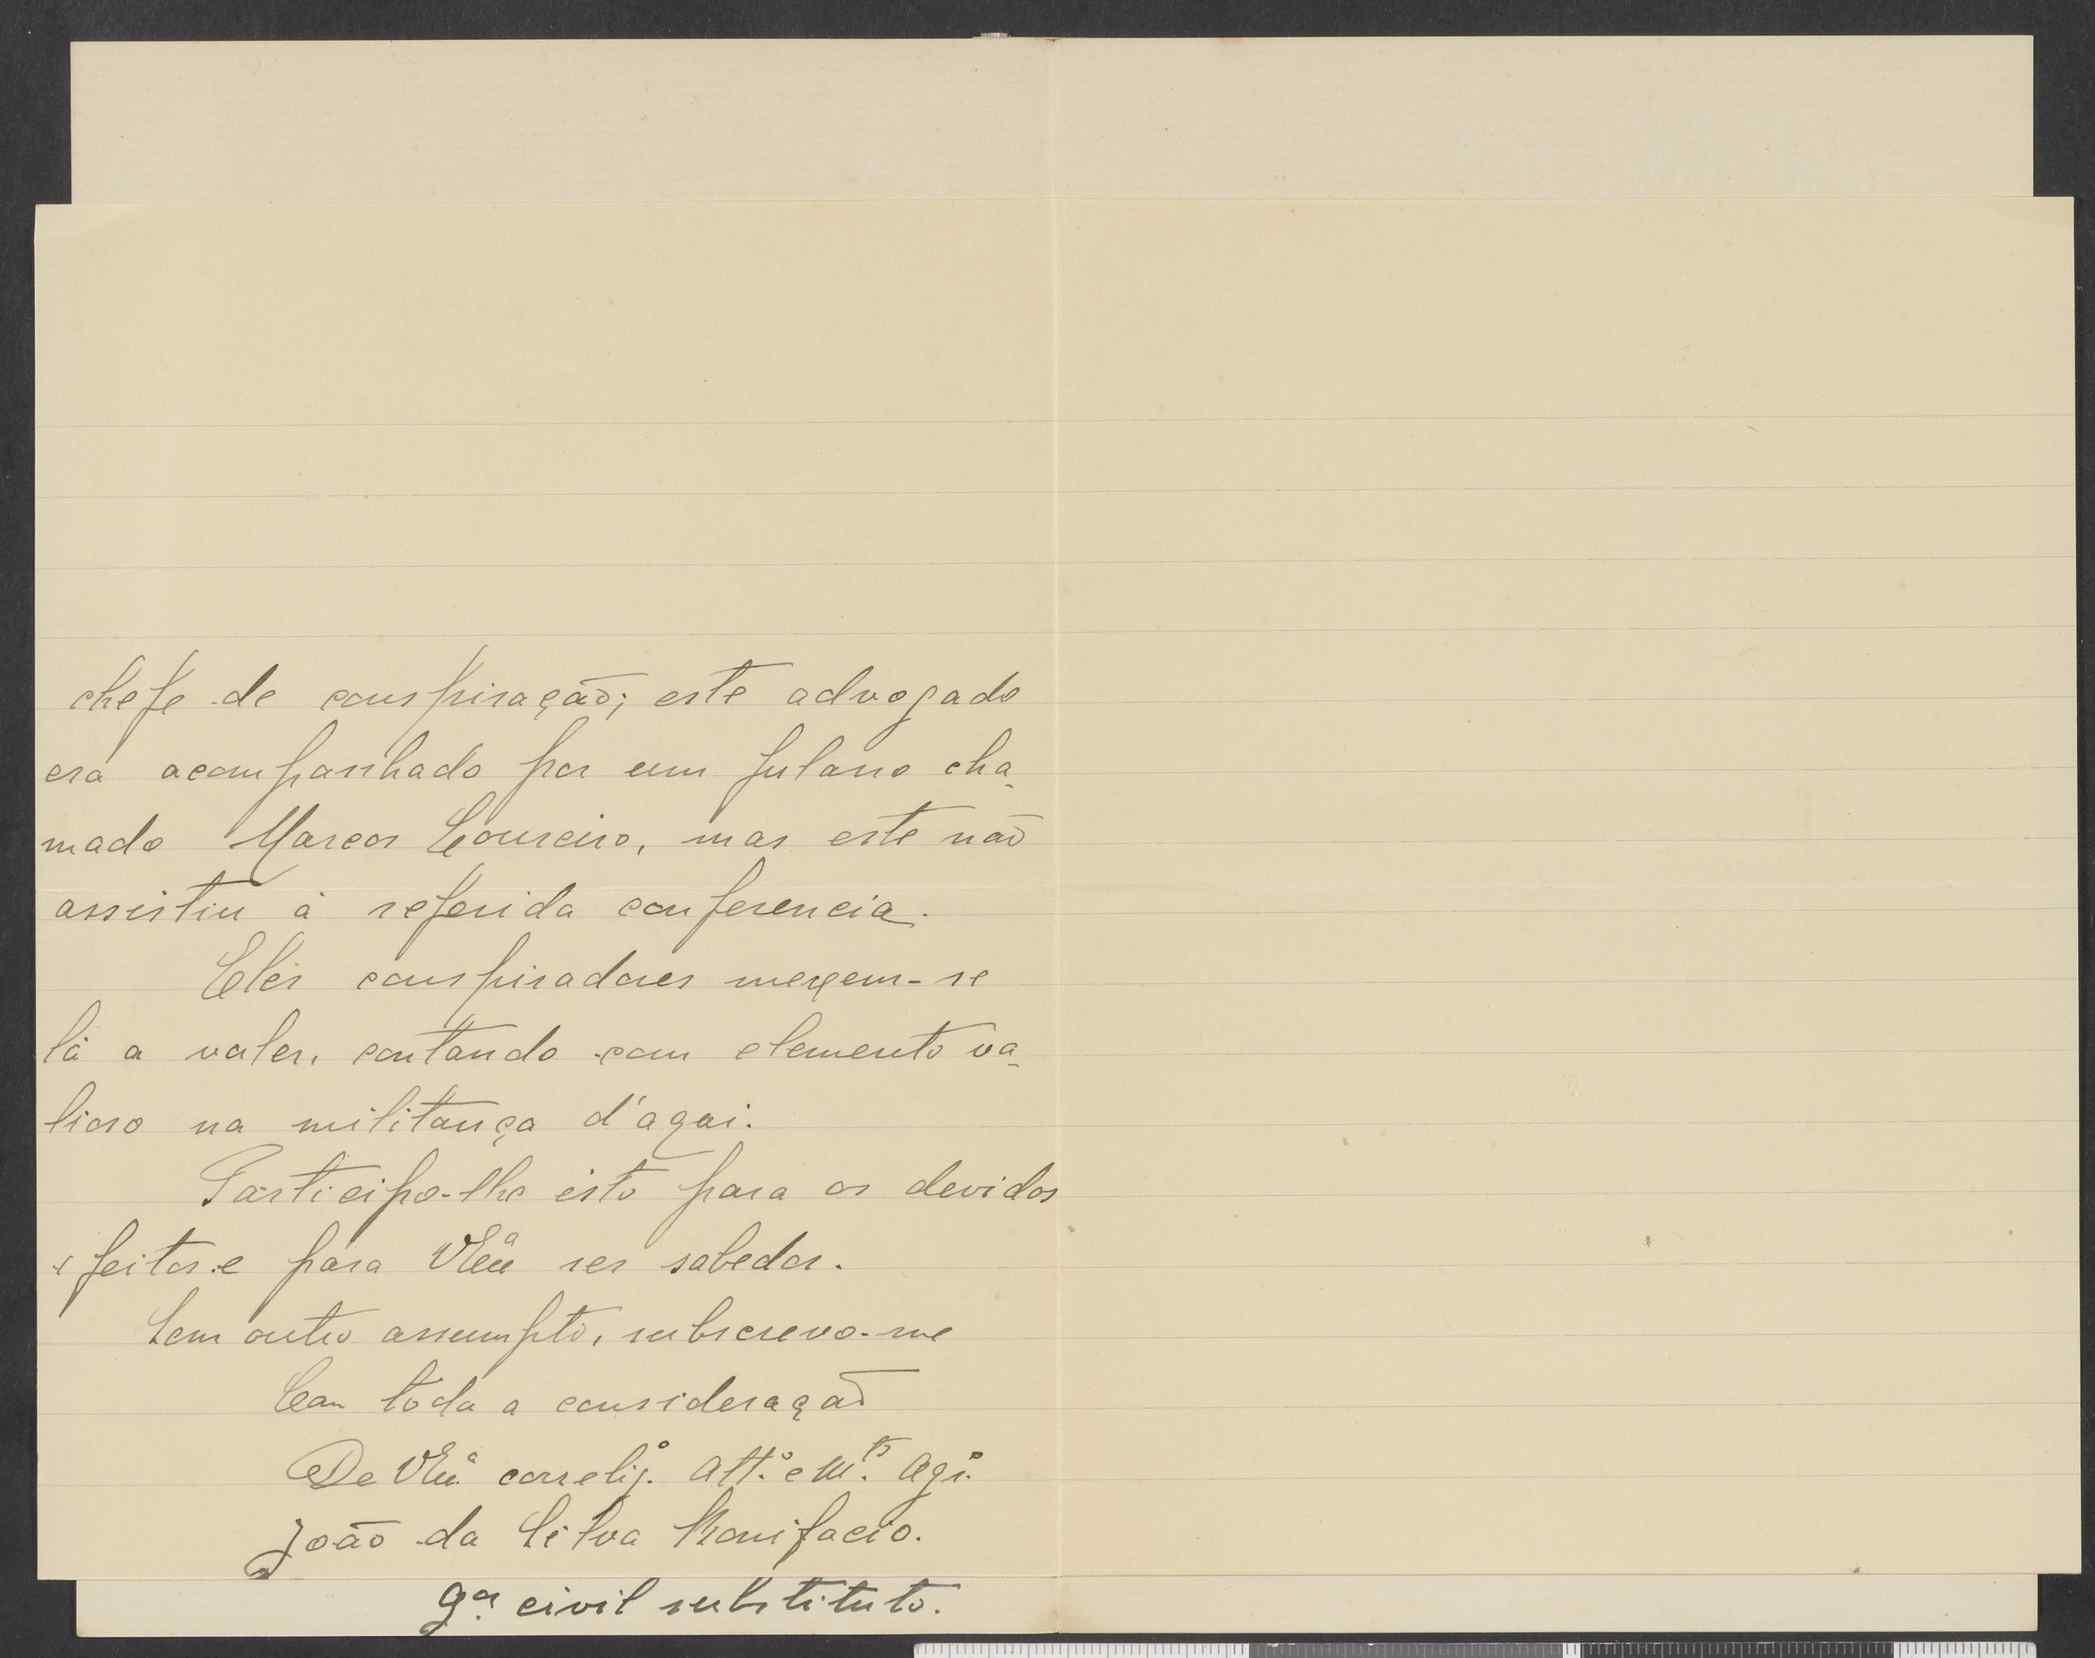 chefe de conspiração; este advogado
era acompanhado por um fulano cha-
mado Marcos Loureiro, mas este não
assistiu á referida conferencia.
Eles conspiradores mexem-se
lá a valer, contando com elemento va-
lioso na militança d'aqui.
Participo-lhe isto para os devidos
efeitos e para VExª ser sabedor.
Sem outro assumpto, subscrevo-me
Com toda a consideração
De VExª correlig.º Att.º e Mt.º Agr.º
João da Silva Bonifacio.
Gor civil substituto.